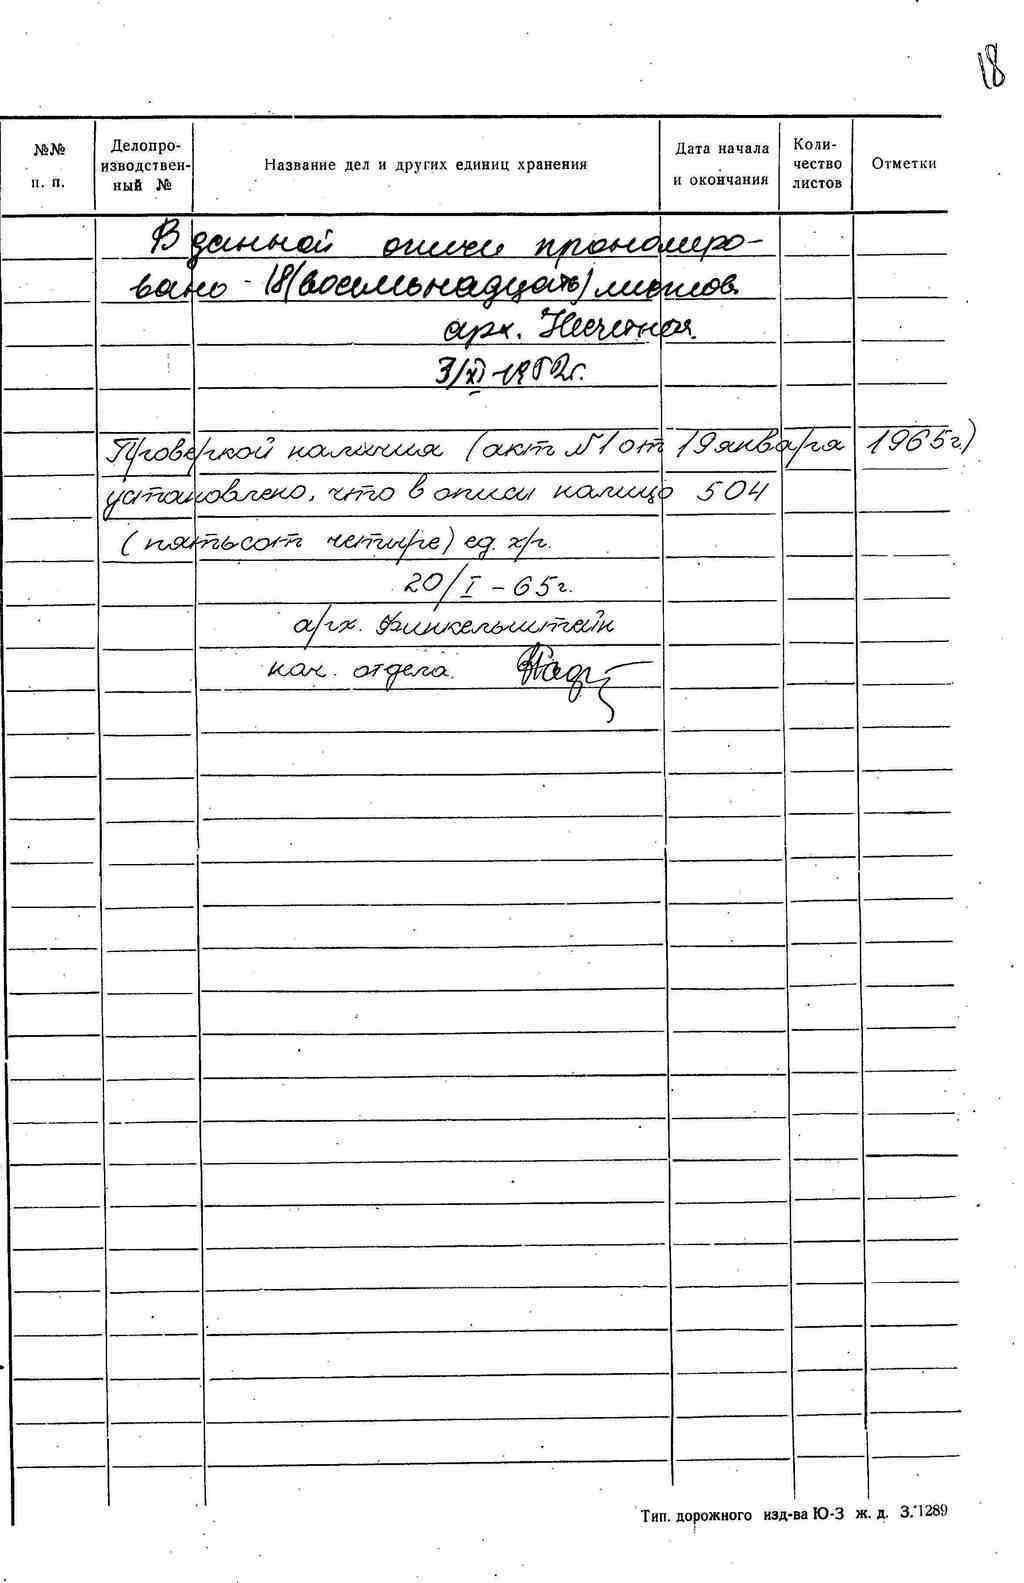 18
№№ п. п.
Делопро-
изводствен-
ный №
Название дел и других единиц хранения
Дата начала
и окончания
Коли-
чество
листов
Отметки
В данной описи прономеро-
вано - 18 (восемьнадцать) листов.
арх. Несчетная
3/XI-1952г.
Проверкой наличия (акт №1 от 19 января 1965г)
установлено, что в описи налицо 504
(пятьсот четыре) ед. хр.
20/I - 65г.
арх. Финкельштейн
нач. отдела.
Тип. дорожного изд-ва Ю-З ж. д. З. 1289